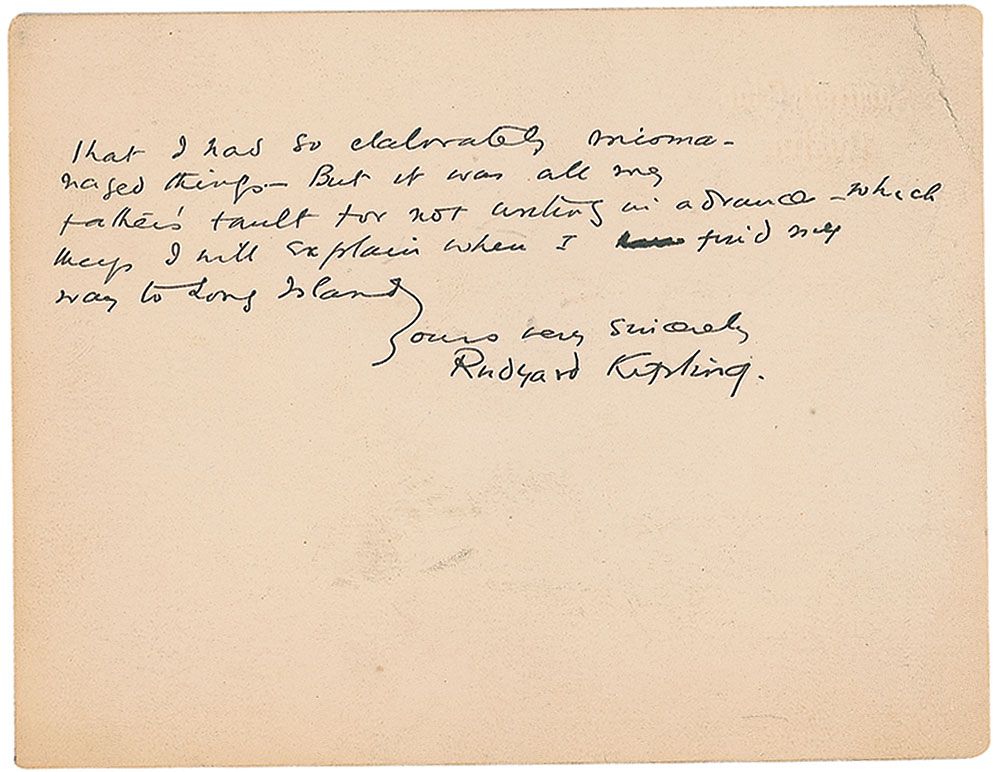 that I had so elaborately misma-
naged things – But it was all my
father's fault for not writing in advance – which
I will explain when I find my
way to Long Island
Yours very sincerely
Rudyard Kipling.